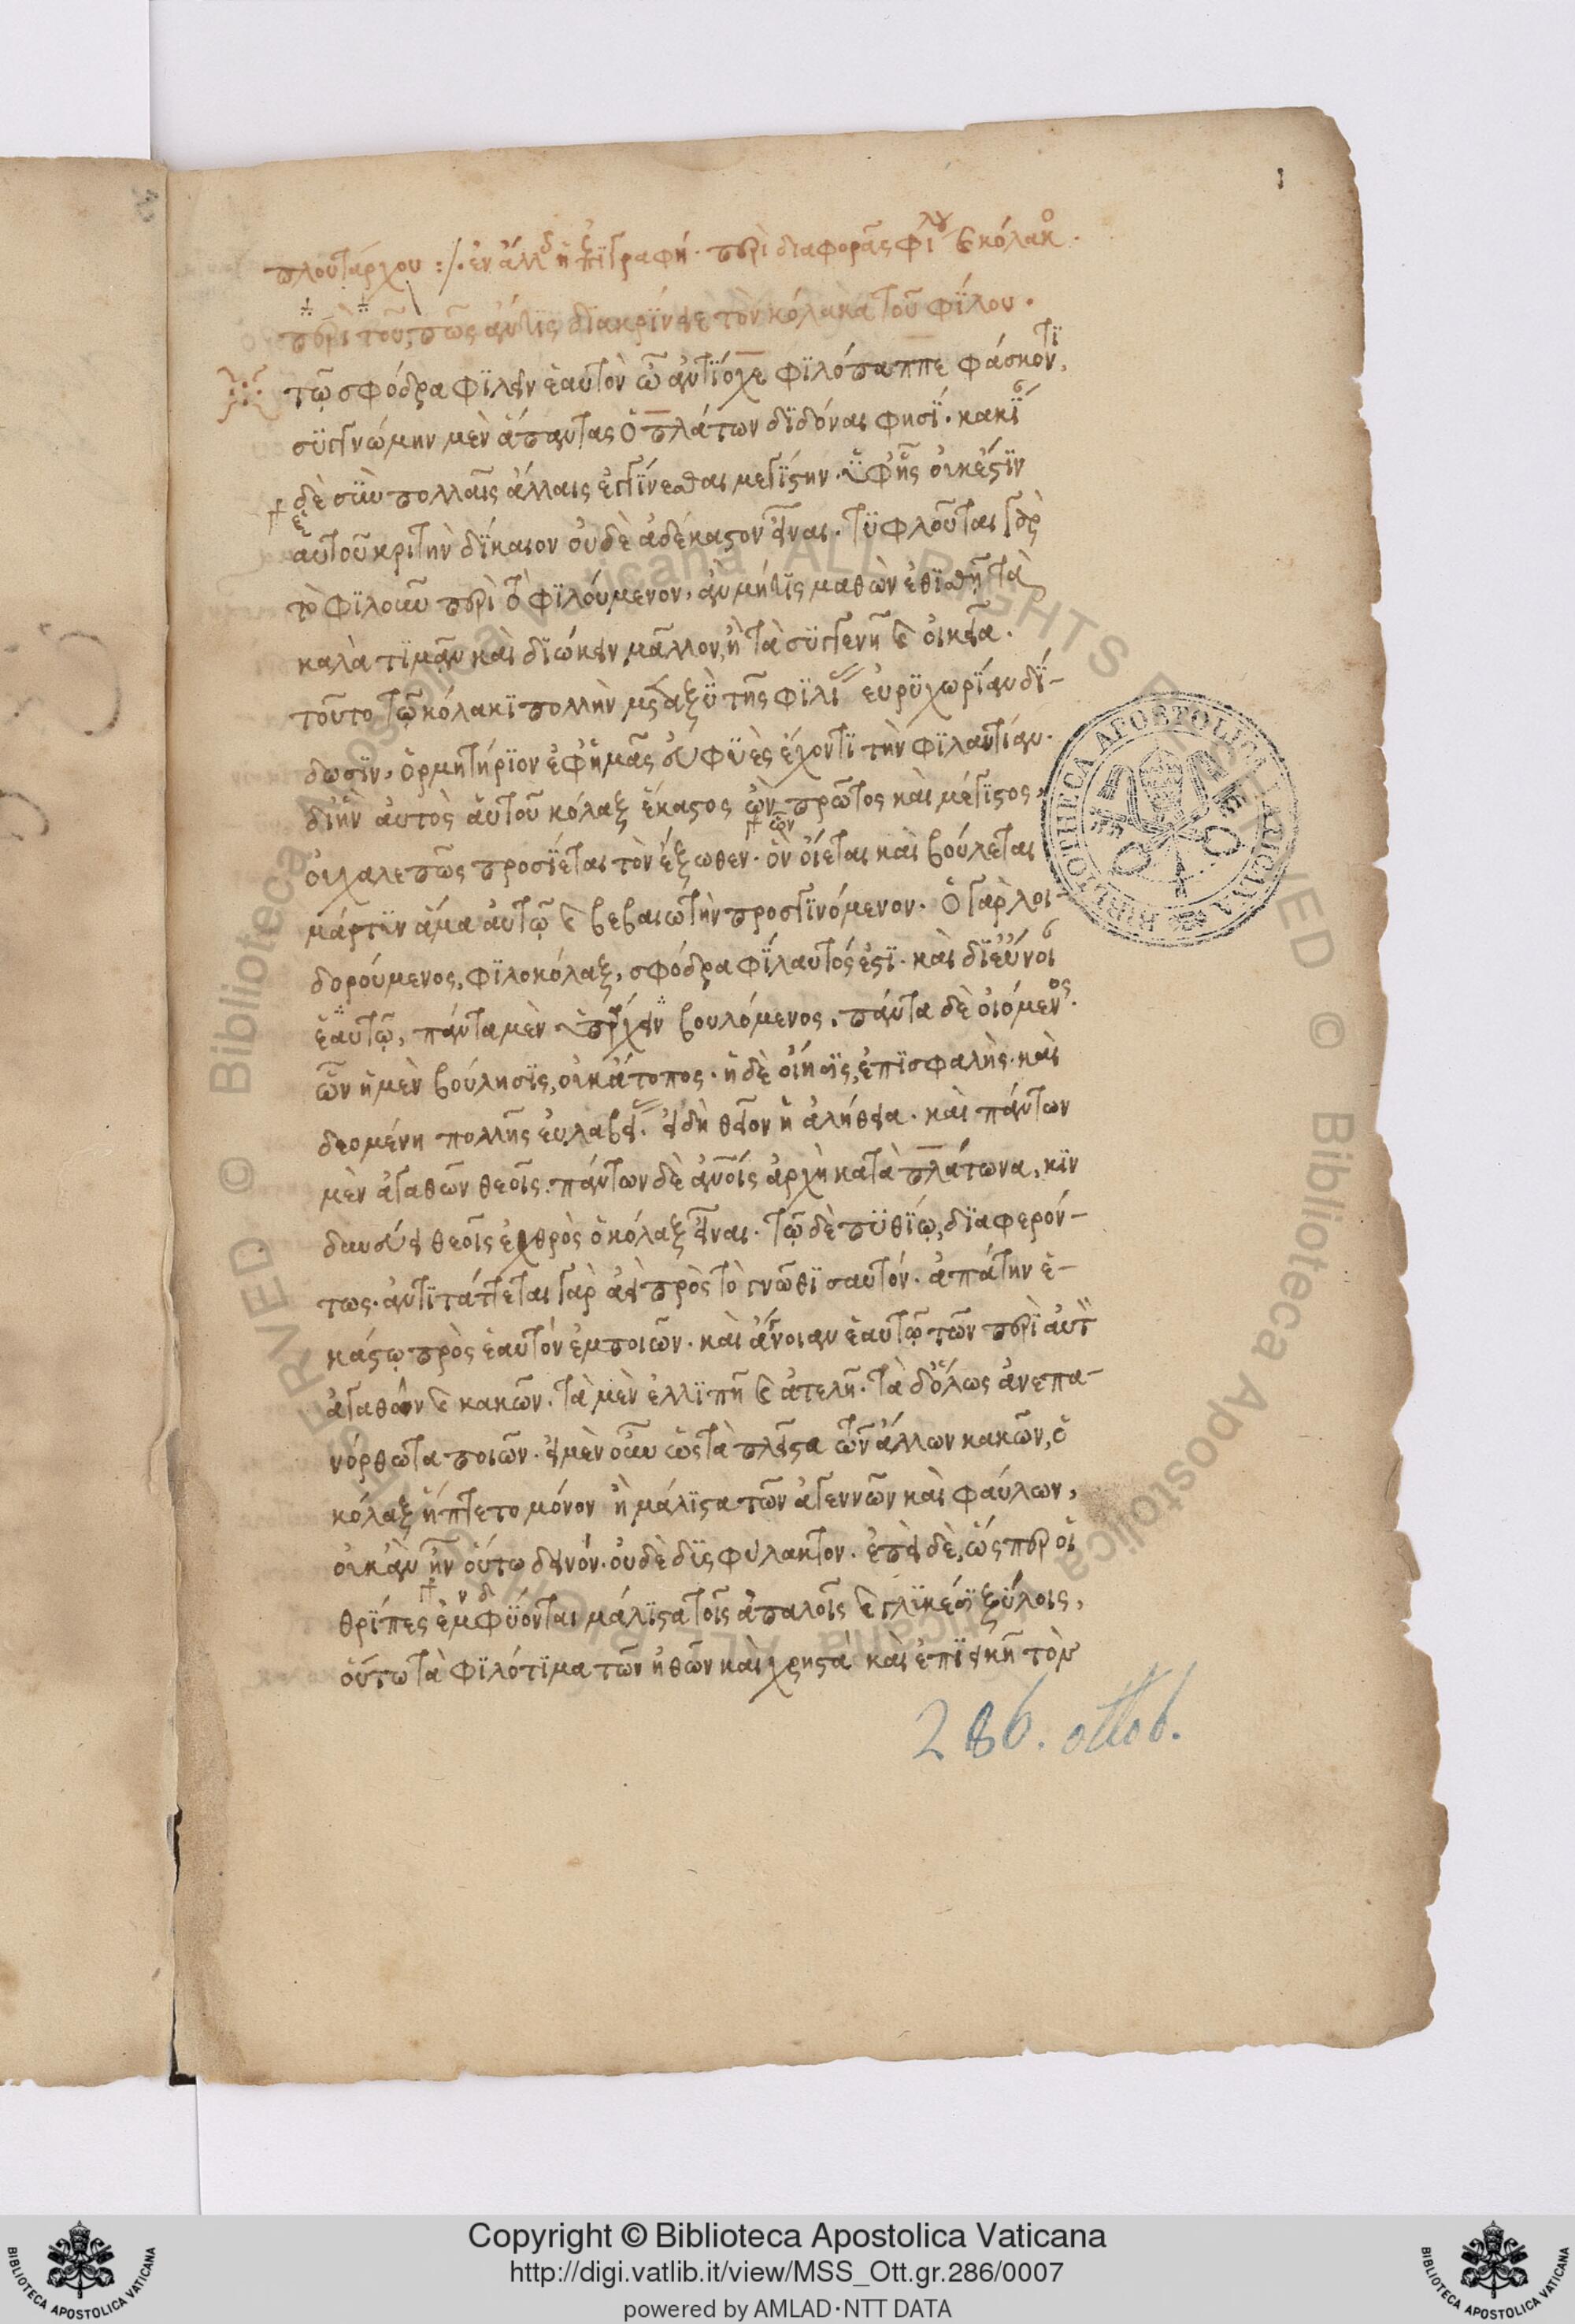 1
πλουτάρχου :/. ἐν ἄλλ δ ἡ ἐπιγραφή· περὶ διαφορᾶς φίλου καὶ κόλακος·
περὶ τοῦ, πῶς ἄν τις διακρίνειε τὸν κόλακα τοῦ φίλου·
τῷ σφόδρα φιλεῖν ἑαυτὸν ὦ ἀντίοχε φιλόπαππε φάσκοντι,
συγγνώμην μὲν ἅπαντας ὁ πλάτων διδόναι φησί· κακί
δὲ σὺν πολλαῖς ἄλλαις ἐγγίνεσθαι μεγίστην· ὑφ' ἧς οὐκ ἔστιν
αὑτοῦ κριτὴν δίκαιον οὐδὲ ἀδέκαστον εἶναι· τυφλοῦται γὰρ
τὸ φιλοῦν περὶ τὸ φιλούμενον, ἂν μή τις μαθὼν ἐθισθῇ τὰ
καλὰ τιμᾶν καὶ διώκειν μᾶλλον, ἢ τὰ συγγενῆ καὶ οἰκεῖα·
τοῦτο τῷ κόλακι πολλὴν μεταξὺ τῆς φιλίας εὐρυχωρίαν δί-
δωσιν, ὁρμητήριον ἐφ' ἡμᾶς εὐφυὲς ἔχοντι τὴν φιλαυτίαν·
δι' ἣν αὐτὸς αὑτοῦ κόλαξ ἕκαστος ὢν πρῶτος καὶ μέγιστος,
οὐ χαλεπῶς προσίεται τὸν ἔξωθεν· ὃν οἴεται καὶ βούλεται
ὧν
μάρτυν ἅμα αὐτῷ καὶ βεβαιωτὴν προσγινόμενον· ὁ γὰρ λοι-
δορούμενος, φιλοκόλαξ, σφόδρα φίλαυτός ἐστι· καὶ δι' εὔνοι
ἑαυτῷ, πάντα μὲν ὑπάρχειν βουλόμενος, πάντα δὲ οἰόμενος·
ὧν ἡ μὲν βούλησις, οὐκ ἄτοπος· ἡ δὲ οἴησις, ἐπισφαλὴς· καὶ
δεομένη πολλῆς εὐλαβείας· εἰ δὴ θεῖον ἡ ἀλήθεια· καὶ πάντων
μὲν ἀγαθῶν θεοῖς· πάντων δὲ ἀνοίς ἀρχὴ κατὰ πλάτωνα, κιν
δυνεύει θεοῖς ἐχθρὸς ὁ κόλαξ εἶναι· τῷ δὲ πυθίῳ, διαφερόν-
τως· ἀντιτάττεται γὰρ ἀεὶ πρὸς τὸ γνῶθι σαυτόν· ἀπάτην ἑ-
κάστῳ πρὸς ἑαυτόν ἐμποιῶν· καὶ ἄγνοιαν ἑαυτῷ τῶν περὶ αὐτ
ἀγαθῶν καὶ κακῶν· τὰ μὲν ἐλλιπῆ καὶ ἀτελῆ· τὰ δ' ὅλως ἀνεπα-
νόρθωτα ποιῶν· εἰ μὲν οὖν ὡς τὰ πλεῖστα τῶν ἄλλων κακῶν, ὁ
κόλαξ ἥπτετο μόνον ἢ μάλιστα τῶν ἀγεννῶν καὶ φαύλων,
οὐκ ἂν ἦν οὕτω δεινόν· οὐδὲ δυσφύλακτον· ἐπεὶ δὲ, ὥσπερ οἱ
θρῖπες ἐμφύονται μάλιστα τοῖς ἁπαλοῖς καὶ γλυκέσι ξύλοις,
οὕτω τὰ φιλότιμα τῶν ἠθῶν καὶ χρηστὰ καὶ ἐπιεικῆ τὸν
286. ottob.
BIBLIOTHECA APOSTOLICA VATICANA
© Biblioteca Apostolica Vaticana ALL RIGHTS RESERVED © Biblioteca Apostolica Vaticana ALL RIGHTS RESERVED
BIBLIOTECA APOSTOLICA VATICANA
Copyright © Biblioteca Apostolica Vaticana
http://digi.vatlib.it/view/MSS_Ott.gr.286/0007
powered by AMLAD·NTT DATA
BIBLIOTECA APOSTOLICA VATICANA